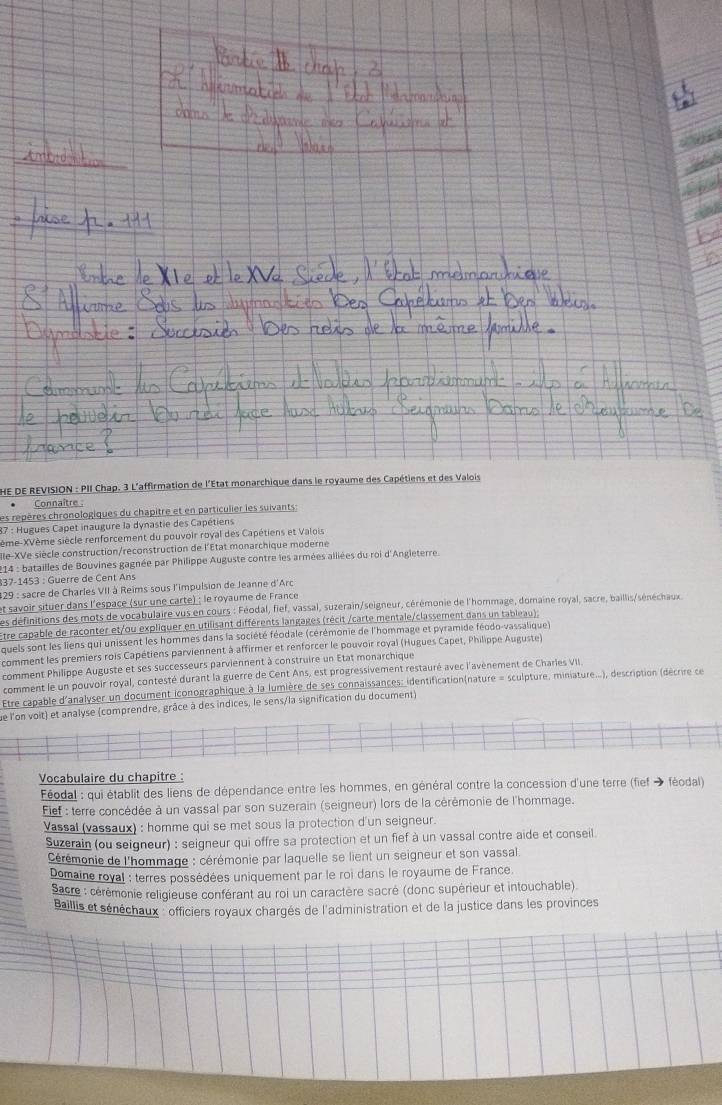 Partie II chap. 3
L'Affirmation de l'Etat Monarchique
dans le royaume des Capétiens et
des Valois
introduction
- frise p. 111
Entre le XIe et le XVe Siècle, l'Etat monarchique
S'Affirme Sous les dynasties Des Capétiens et Des Valois.
Dynastie : Succession Des rois de la même famille.
Comment les Capétiens et Valois parviennent-ils à Affirmer
le pouvoir Du roi face aux Autres Seigneurs Dans le royaume De
France ?
HE DE REVISION : PII Chap. 3 L'affirmation de l'Etat monarchique dans le royaume des Capétiens et des Valois
• Connaître :
es repères chronologiques du chapitre et en particulier les suivants:
87 : Hugues Capet inaugure la dynastie des Capétiens
ème-XVème siècle renforcement du pouvoir royal des Capétiens et Valois
IIe-XVe siècle construction/reconstruction de l'Etat monarchique moderne
214 : batailles de Bouvines gagnée par Philippe Auguste contre les armées alliées du roi d'Angleterre.
337-1453 : Guerre de Cent Ans
429 : sacre de Charles VII à Reims sous l'impulsion de Jeanne d'Arc
et savoir situer dans l'espace (sur une carte) : le royaume de France
es définitions des mots de vocabulaire vus en cours : Féodal, fief, vassal, suzerain/seigneur, cérémonie de l'hommage, domaine royal, sacre, baillis/sénéchaux.
Etre capable de raconter et/ou expliquer en utilisant différents langages (récit /carte mentale/classement dans un tableau):
quels sont les liens qui unissent les hommes dans la société féodale (cérémonie de l'hommage et pyramide féodo-vassalique)
comment les premiers rois Capétiens parviennent à affirmer et renforcer le pouvoir royal (Hugues Capet, Philippe Auguste)
comment Philippe Auguste et ses successeurs parviennent à construire un Etat monarchique
comment le un pouvoir royal, contesté durant la guerre de Cent Ans, est progressivement restauré avec l'avènement de Charles VII.
Etre capable d'analyser un document iconographique à la lumière de ses connaissances: identification(nature = sculpture, miniature...), description (décrire ce
ue l'on voit) et analyse (comprendre, grâce à des indices, le sens/la signification du document)
Vocabulaire du chapitre :
Féodal : qui établit des liens de dépendance entre les hommes, en général contre la concession d'une terre (fief → féodal)
Fief : terre concédée à un vassal par son suzerain (seigneur) lors de la cérémonie de l'hommage.
Vassal (vassaux) : homme qui se met sous la protection d'un seigneur.
Suzerain (ou seigneur) : seigneur qui offre sa protection et un fief à un vassal contre aide et conseil.
Cérémonie de l'hommage : cérémonie par laquelle se lient un seigneur et son vassal.
Domaine royal : terres possédées uniquement par le roi dans le royaume de France.
Sacre : cérémonie religieuse conférant au roi un caractère sacré (donc supérieur et intouchable).
Baillis et sénéchaux : officiers royaux chargés de l'administration et de la justice dans les provinces